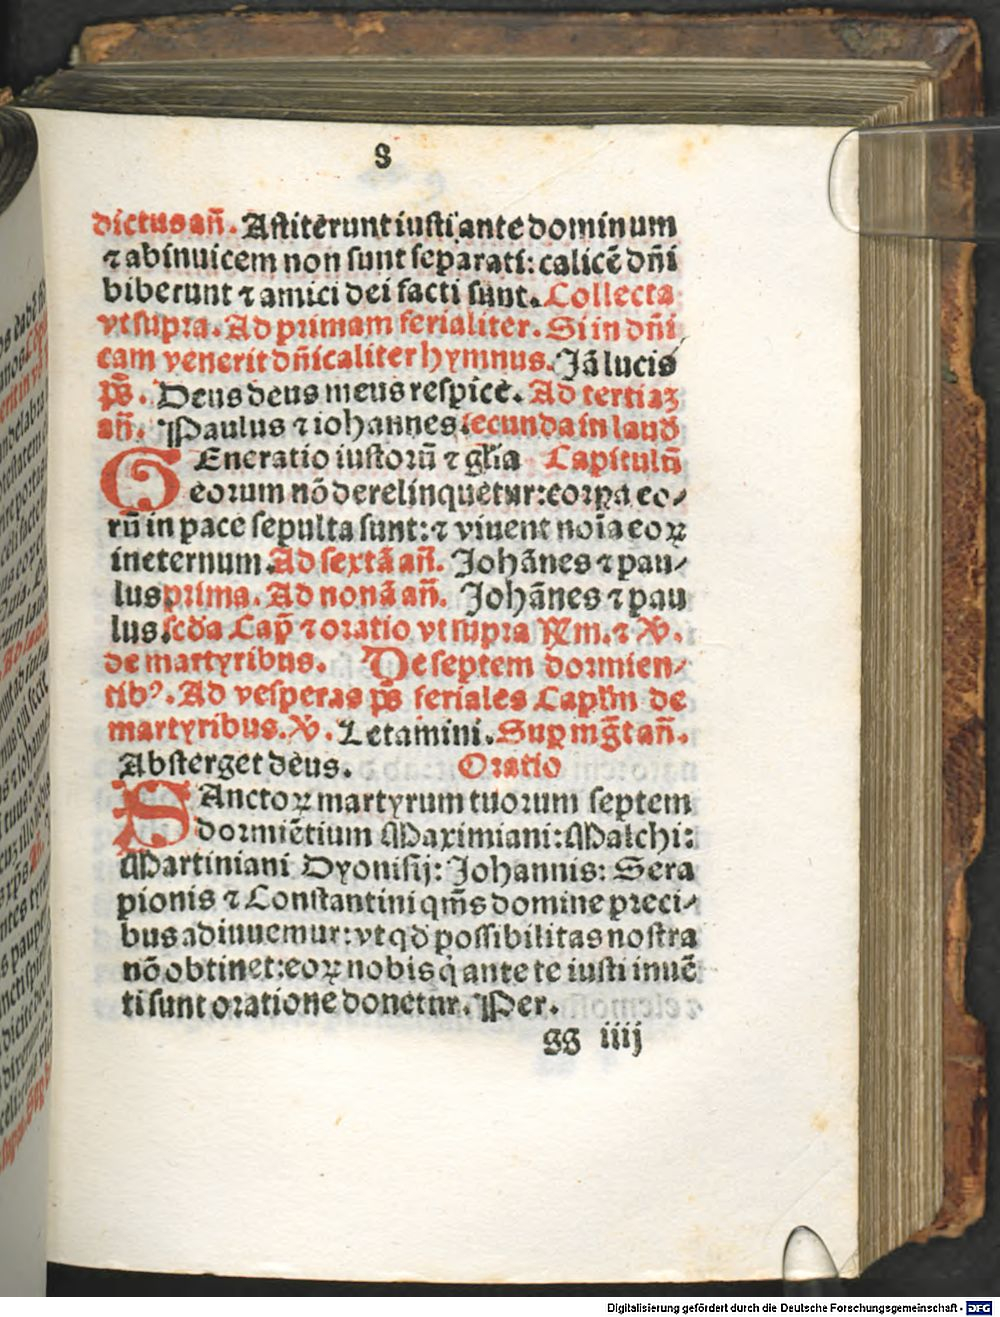 S
dictus añ. Astiterunt iusti ante dominum
⁊ abinuicem non sunt separati: calicē dñi
biberunt ⁊ amici dei facti sunt. Collecta
vt supra. Ad primam ferialiter. Si in dñi
cam venerit dñicaliter hymnus. Jā lucis
p̄s. Deus deus meus respice. Ad tertiaꝫ
añ. Paulus ⁊ iohannes. secunda in laud
GEneratio iustorū ⁊ gl̄ia Capitulū
eorum nō derelinquetur: corpa eo-
rū in pace sepulta sunt: ⁊ viuent noīa eoꝝ
ineternum. Ad sextā añ. Johānes ⁊ pau-
lus prima. Ad nonā añ. Johānes ⁊ pau
lus. scďa Cap̄ ⁊ oratio vt supra Rm. ⁊ ℣.
de martyribus. De septem dormien-
tibꝰ. Ad vesperas p̄s feriales Caplm̄ de
martyribus. ℣. Letamini. Sup mg̃t añ.
Absterget deus. Oratio
SAnctoꝝ martyrum tuorum septem
dormiētium Maximiani: Malchi:
Martiniani Dyonisij: Johannis: Sera
pionis ⁊ Constantini qm̄s domine preci-
bus adiuuemur: vt qd possibilitas nostra
nō obtinet: eoꝝ nobis q̇ ante te iusti inuē
ti sunt oratione donetur. Per.
gg iiij
Digitalisierung gefördert durch die Deutsche Forschungsgemeinschaft - DFG